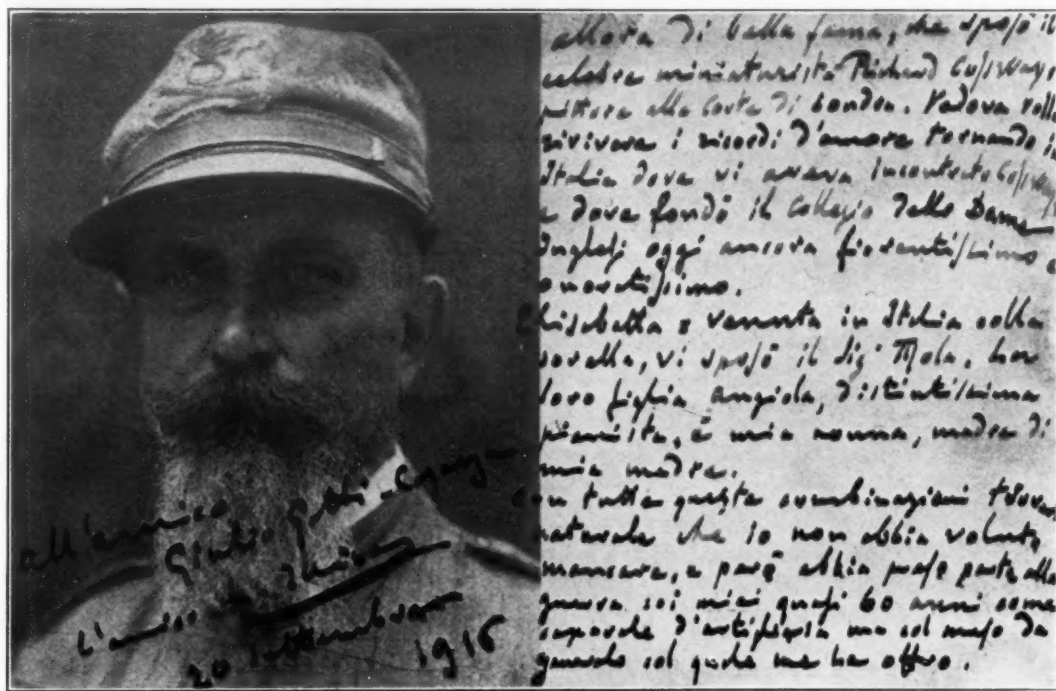 all'amico
Giulio Gatti-Casazza
L'amico
20 settembre
1916
allora di bella fama, che sposò il
celebre miniaturista Richard Cosway,
pittore alla Corte di Londra. Vedova volle
rivivere i ricordi d'amore tornando in
Italia dove vi aveva incontrato Cosway
e dove fondò il Collegio delle Dame
Inglesi oggi ancora fiorentissimo e
onoratissimo.
Elisabetta è venuta in Italia colla
sorella, vi sposò il Sig.
loro figlia Angiola, distintissima
pianista, è mia nonna, madre di
mia madre.
con tutte queste combinazioni
naturale che io non abbia voluto
mancare, e però abbia preso parte alla
guerra coi miei quasi 60 anni come
caporale d'artiglieria ma col muso da
generale col quale offro.